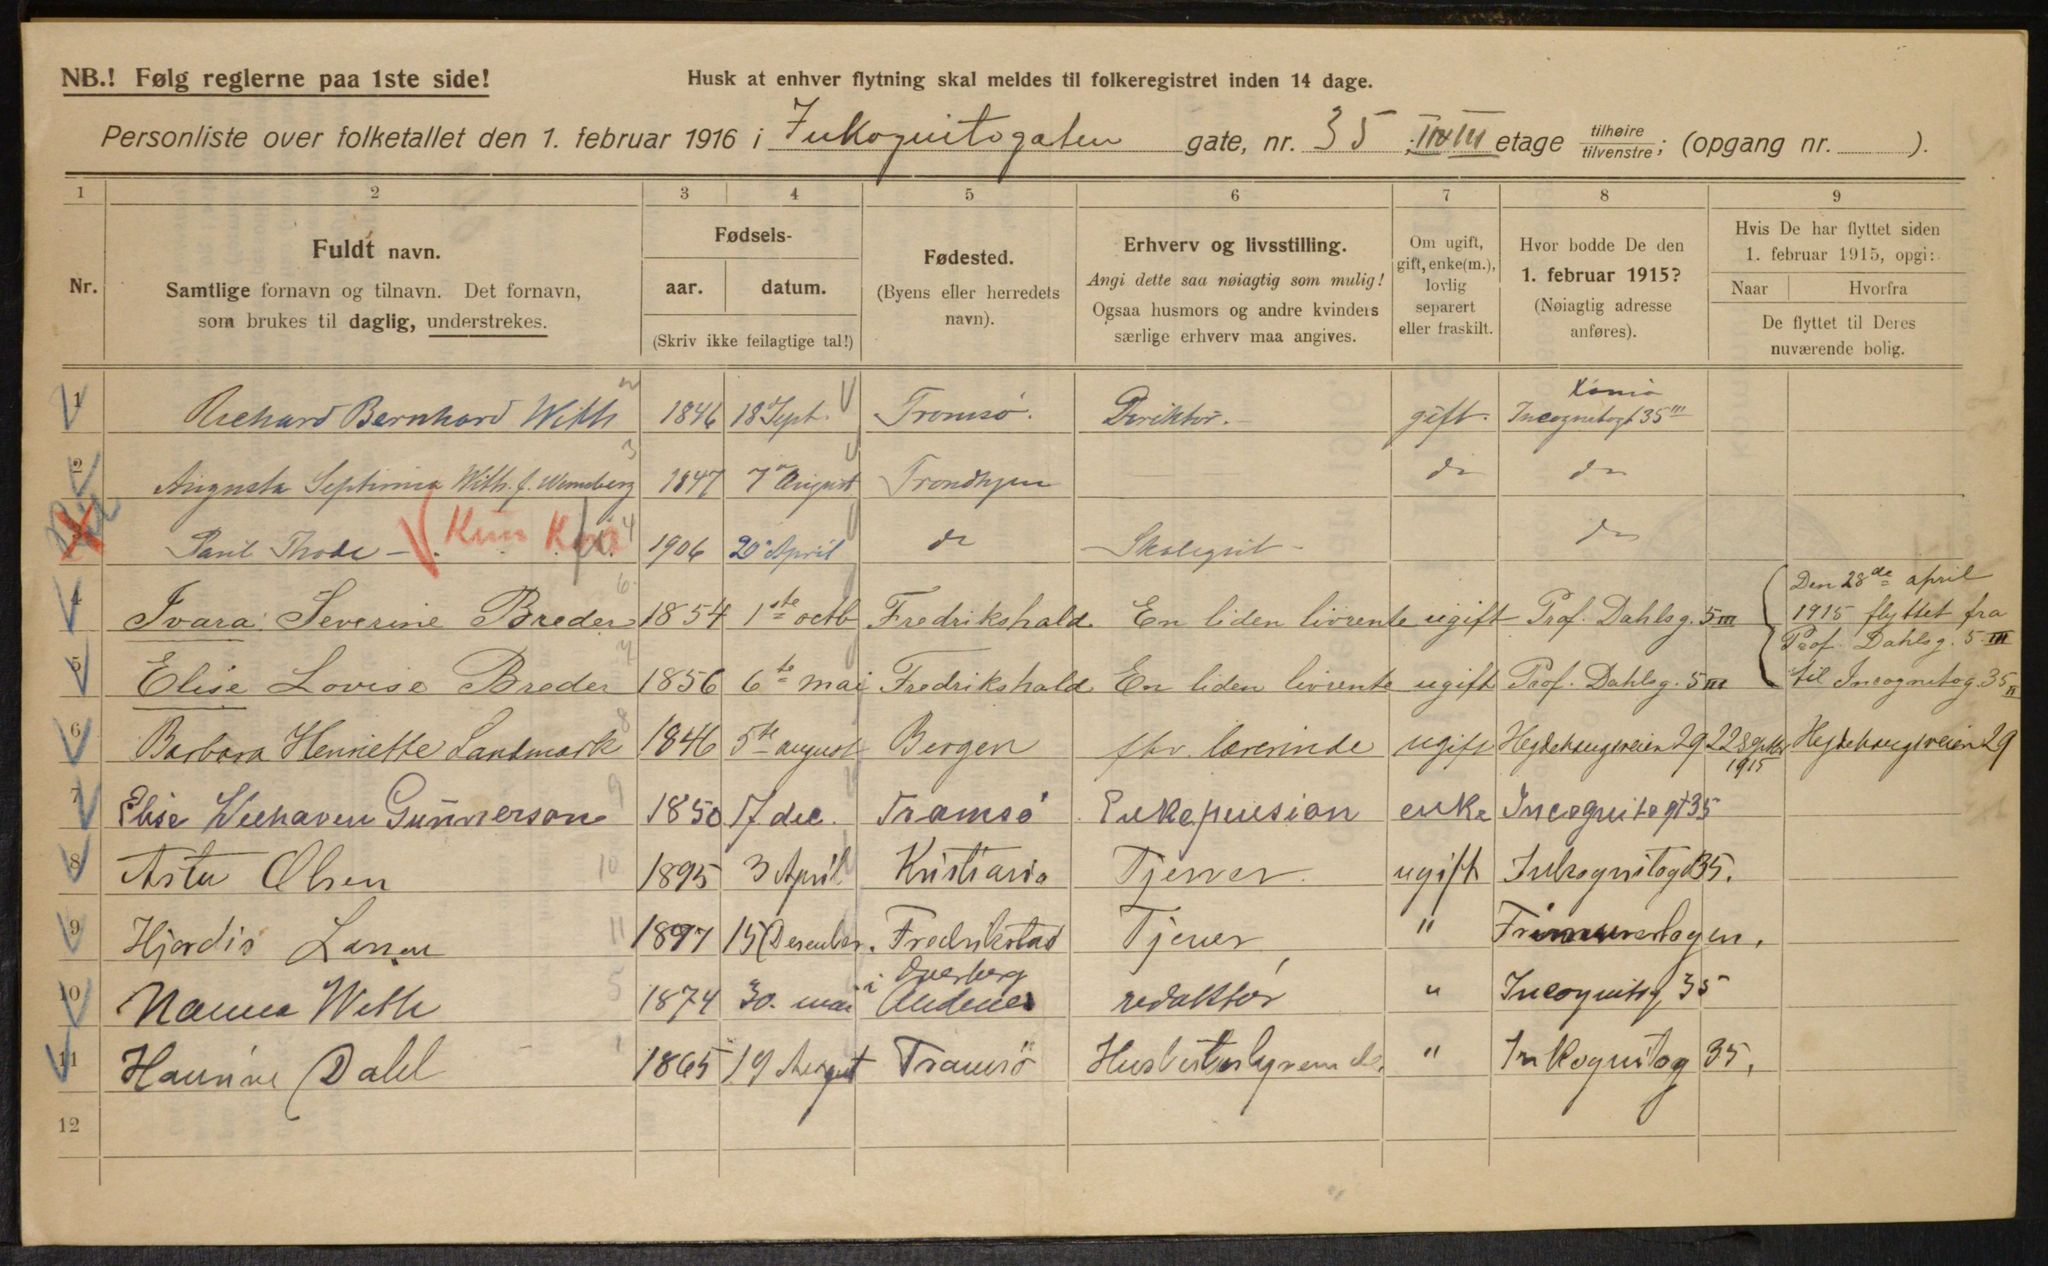 NB.! Følg reglerne paa 1ste side!
Husk at enhver flytning skal meldes til folkeregistret inden 14 dage.
Personliste over folketallet den 1. februar 1916 i Inkognitogaten gate, nr. 35 ; II & III etage tilhøire tilvenstre; (opgang nr. ).
1 2 3 4 5 6 7 8 9
Nr.
Fuldt navn.
Samtlige fornavn og tilnavn. Det fornavn,
som brukes til daglig, understrekes.
Fødsels-
aar. datum.
(Skriv ikke feilagtige tal!)
Fødested.
(Byens eller herredets
navn).
Erhverv og livsstilling.
Angi dette saa nøiagtig som mulig!
Ogsaa husmors og andre kvinders
særlige erhverv maa angives.
Om ugift,
gift, enke(m.),
lovlig
separert
eller fraskilt.
Hvor bodde De den
1. februar 1915?
(Nøiagtig adresse
anføres).
Hvis De har flyttet siden
1. februar 1915, opgi:
Naar Hvorfra
De flyttet til Deres
nuværende bolig.
1 Richard Bernhard With 2 1846 18 Sept. Tromsø. Direktør. gift. Xania Incognitogt 35 III
2 Augusta Septimia With f. 3 1847 7 August Trondhjem do do
3 Paul Thode Kun 4 1906 20 April do Skolegut do
4 Ivara Severine Breder 6 1854 1ste octb Fredrikshald En liden livrente ugift Prof. Dahlsg. 5 III
Den 28de april
1915 flyttet fra
Prof. Dahlsg. 5 III
til Incognitog. 35 II
5 Elise Lovise Breder 7 1856 6te mai Fredrikshald En liden livrente ugift Prof. Dahlsg. 5 III
6 Barbara Henriette Landmark 8 1846 5te august Bergen fhv. lærerinde ugift Hegdehaugsveien 29 22 septbr 1915 Hegdehaugsveien 29
7 Elise Weehaven Gunnerson 9 1850 17 dec. Tromsø Enkepension enke Incognitogt 35
8 Asta Olsen 10 1895 3 April Kristiania Tjener ugift Inkognitogt 35.
9 Hjordis Larsen 11 1897 15 Desember. Fredrikstad Tjener " Frimurerlogen.
10 Nanna With 5 1874 30. mai i Andenes redaktør " Incognitog 35
11 Hannine Dahl 1 1865 19 August Tromsø " Inkognitog 35.
12